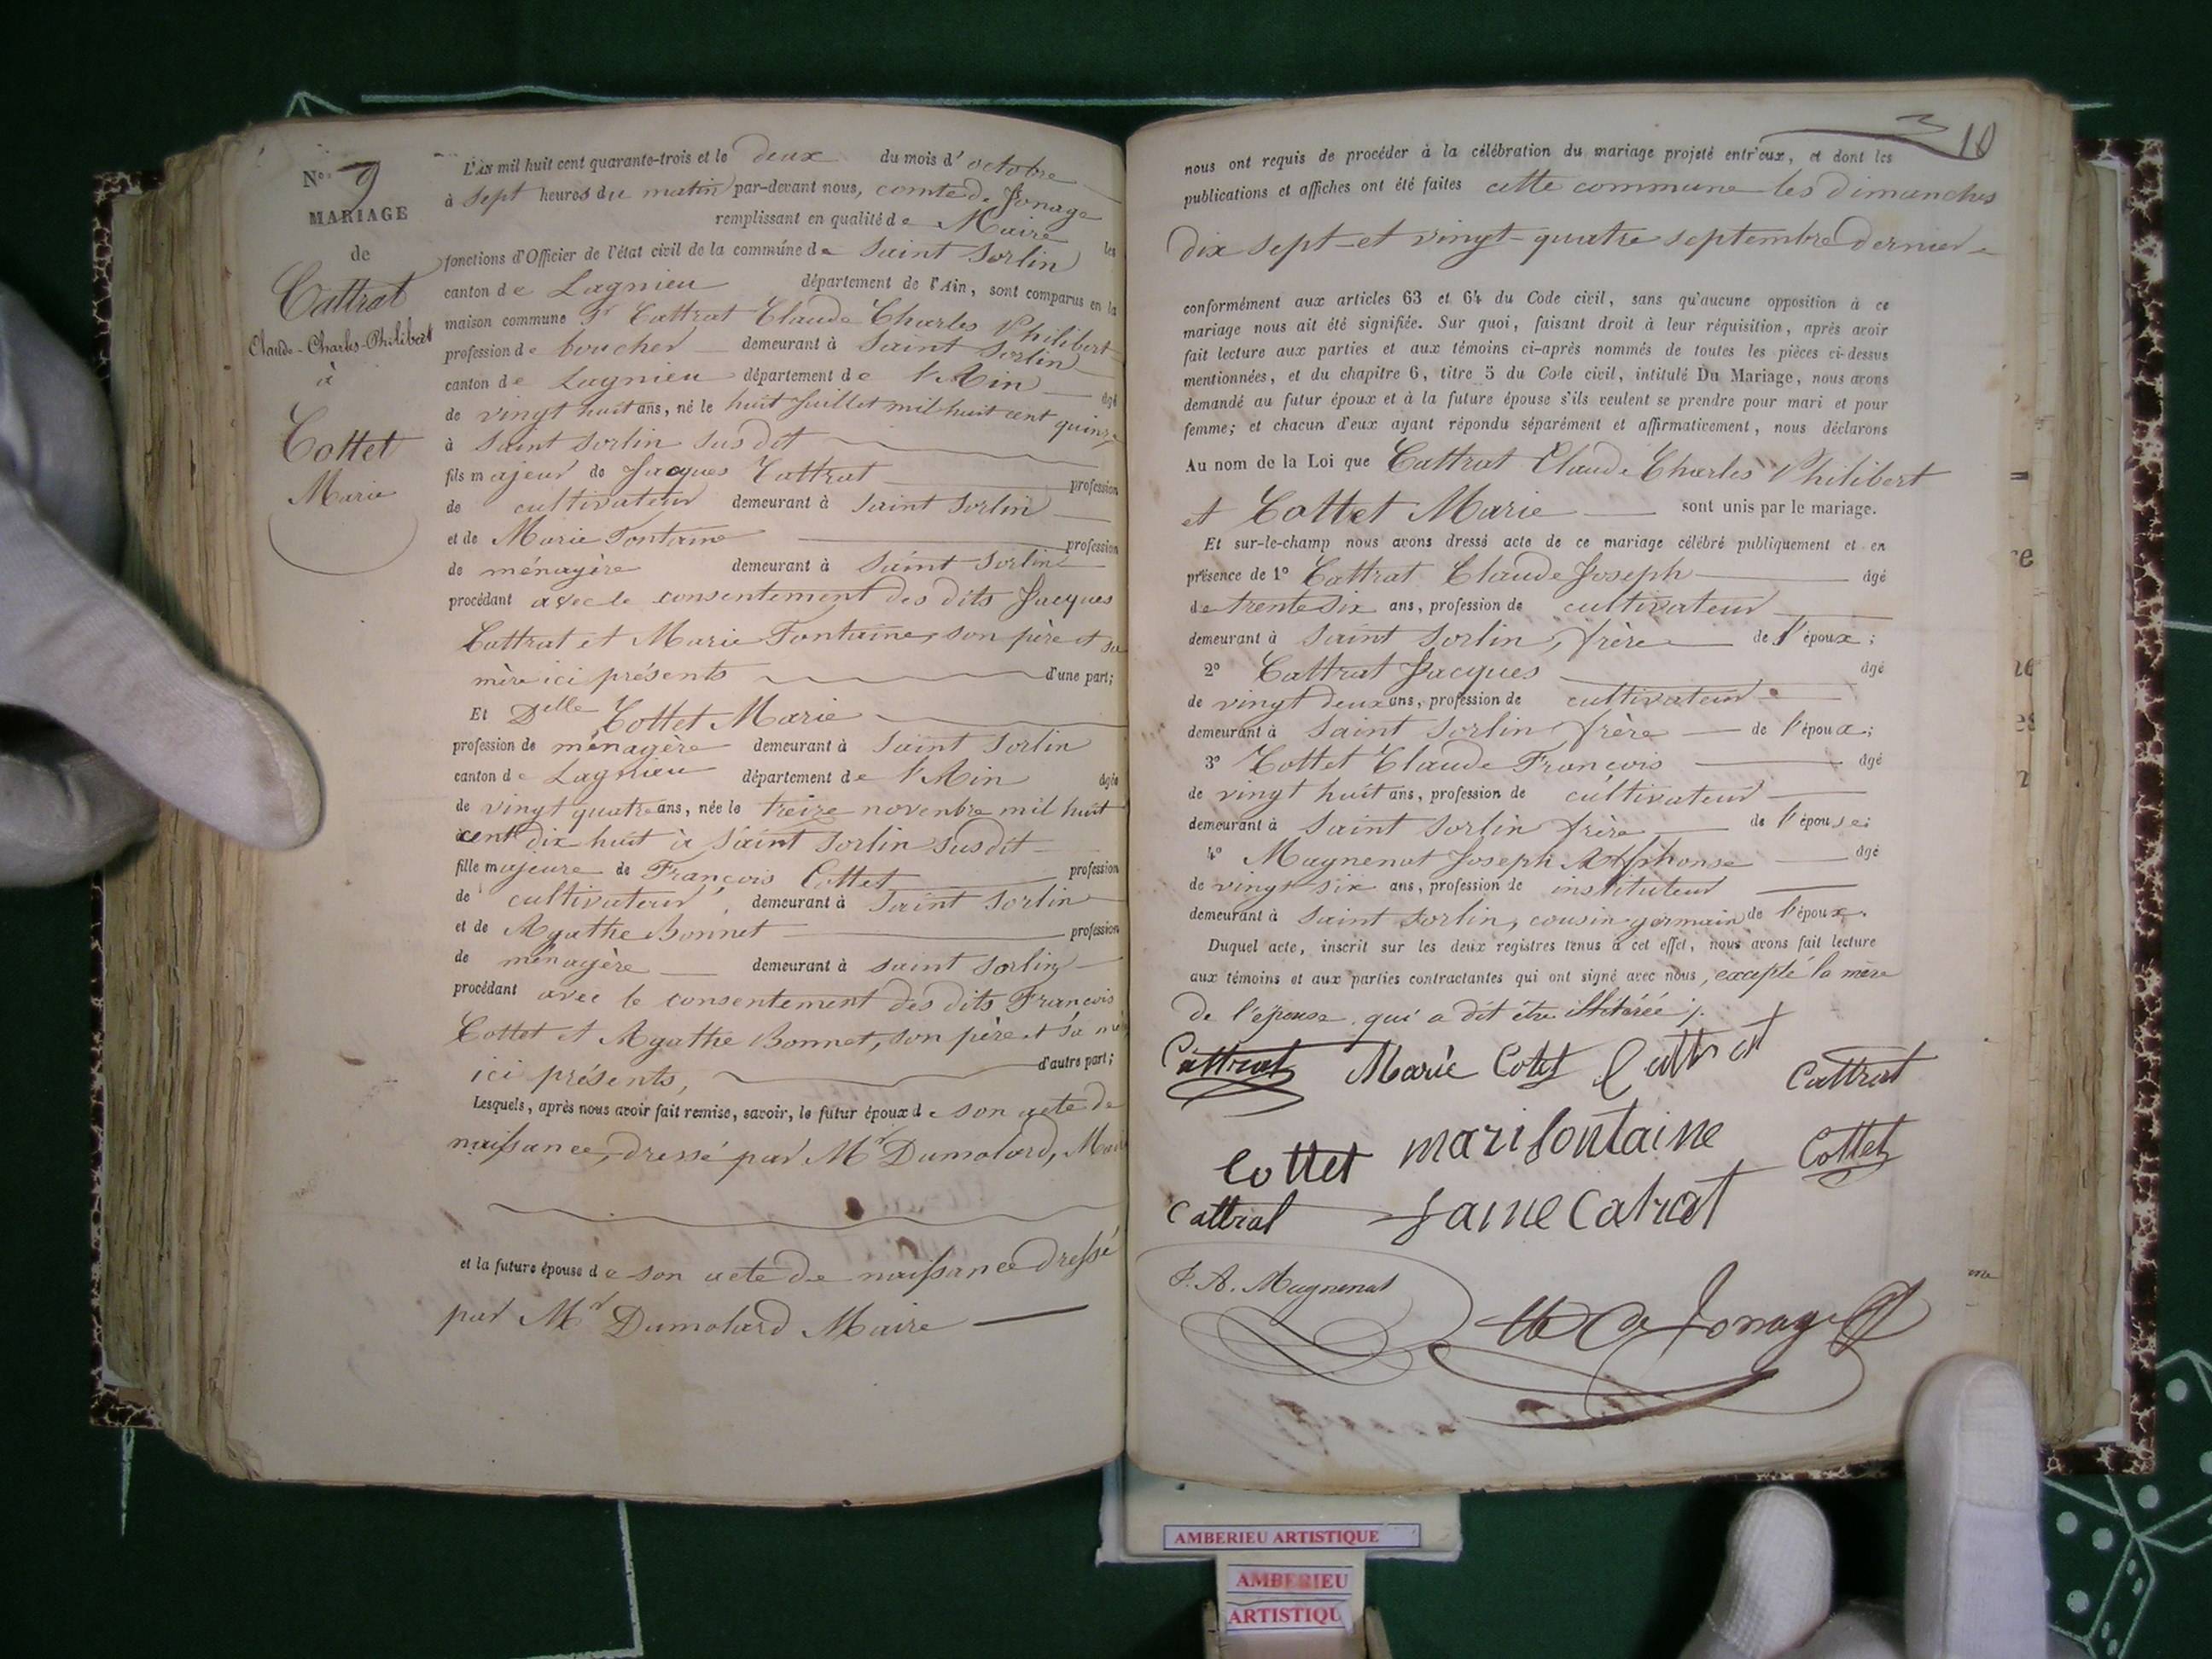 No. 9
MARIAGE
de
Cattrat
Claude-Charles-Philibert
à
Cottet
Marie
L'AN mil huit cent quarante-trois et le deux du mois d'octobre
à sept heures du matin par-devant nous, comte de Jonage
remplissant en qualité de Maire les
fonctions d'Officier de l'état civil de la commune de Saint Sorlin
canton de Lagnieu département de l'Ain, sont comparus en la
maison commune Sr Cattrat Claude Charles Philibert
profession de boucher demeurant à Saint Sorlin
canton de Lagnieu département de l'Ain âgé
de vingt huit ans, né le huit Juillet mil huit cent quinze
à Saint Sorlin susdit
fils majeur de Jacques Cattrat profession
de cultivateur demeurant à Saint Sorlin
et de Marie Fontaine profession
de ménagère demeurant à Saint Sorlin
procédant avec le consentement des dits Jacques
Cattrat et Marie Fontaine, son père et sa
mère ici présents d'une part;
Et Delle Cottet Marie
profession de ménagère demeurant à Saint Sorlin
canton de Lagnieu département de l'Ain âgée
de vingt quatre ans, née le treize novenbre mil huit
cent dix huit à Saint Sorlin susdit
fille majeure de François Cottet profession
de cultivateur, demeurant à Saint Sorlin
et de Agathe Bonnet profession
de ménagère demeurant à saint Sorlin
procédant avec le consentement des dits François
Cottet et Agathe Bonnet, son père et sa mè
ici présents, d'autre part;
Lesquels, après nous avoir fait remise, savoir, le futur époux de son acte de
naissance, dressé par Mr Dumolard, Mai
et la future épouse de son acte de naissance dressé
par Mr Dumolard Maire
10
nous ont requis de procéder à la célébration du mariage projeté entr'eux, et dont les
publications et affiches ont été faites cette commune les dimanches
dix sept et vingt-quatre septembre dernier
conformément aux articles 63 et 64 du Code civil, sans qu'aucune opposition à ce
mariage nous ait été signifiée. Sur quoi, faisant droit à leur réquisition, après avoir
fait lecture aux parties et aux témoins ci-après nommés de toutes les pièces ci-dessus
mentionnées, et du chapitre 6, titre 5 du Code civil, intitulé Du Mariage, nous avons
demandé au futur époux et à la future épouse s'ils veulent se prendre pour mari et pour
femme; et chacun d'eux ayant répondu séparément et affirmativement, nous déclarons
Au nom de la Loi que Cattrat Claude Charles Philibert
et Cottet Marie sont unis par le mariage.
Et sur-le-champ nous avons dressé acte de ce mariage célébré publiquement et en
présence de 1º Cattrat Claude Joseph âgé
de trente six ans, profession de cultivateur
demeurant à Saint Sorlin, frère de l'époux;
2º Cattrat Jacques âgé
de vingt deux ans, profession de cultivateur
demeurant à Saint Sorlin frère de l'époux;
3º Cottet Claude François âgé
de vingt huit ans, profession de cultivateur
demeurant à Saint Sorlin frère de l'épouse;
4º Magnenat Joseph Alphonse âgé
de vingt-six ans, profession de instituteur
demeurant à Saint Sorlin, cousin germain de l'époux.
Duquel acte, inscrit sur les deux registres tenus à cet effet, nous avons fait lecture
aux témoins et aux parties contractantes qui ont signé avec nous, excepté la mère
de l'épouse qui a dit être illitérée
Cattrat Marie Cotet Cattrat Cattrat
Cottet mari fontaine Cottet
Cattrat Catrat
J. A. Magnenat de Jonage
AMBERIEU ARTISTIQUE
AMBERIEU
ARTISTIQU